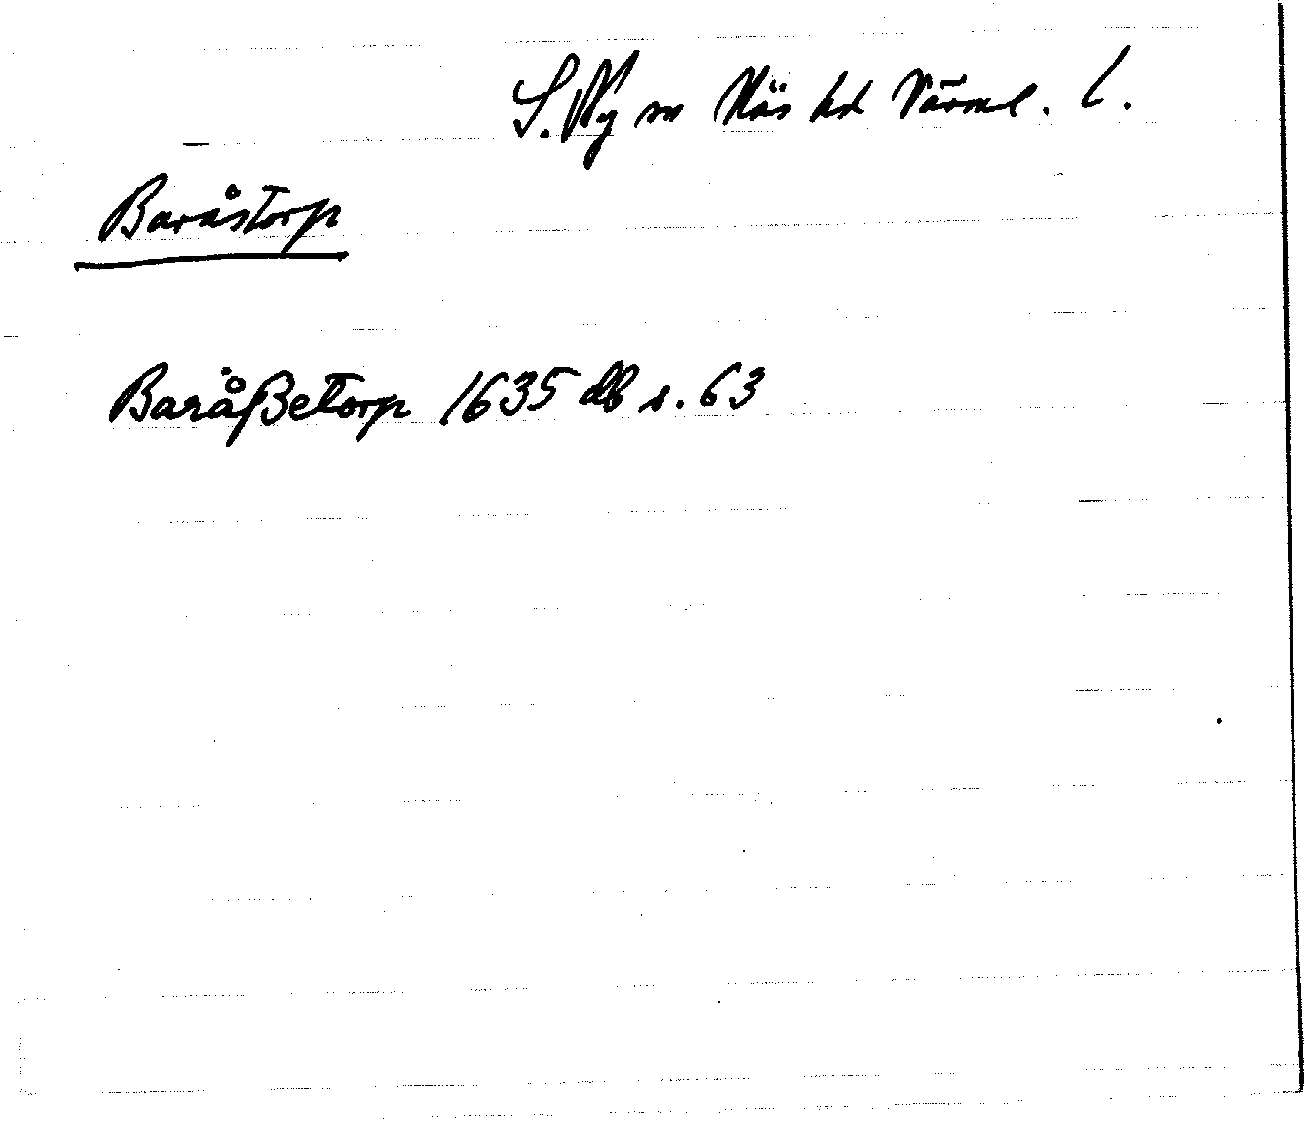 S. Ny sn Näs hd Värml. l.
Baråstorp
Baråßetorp 1635 db s. 63